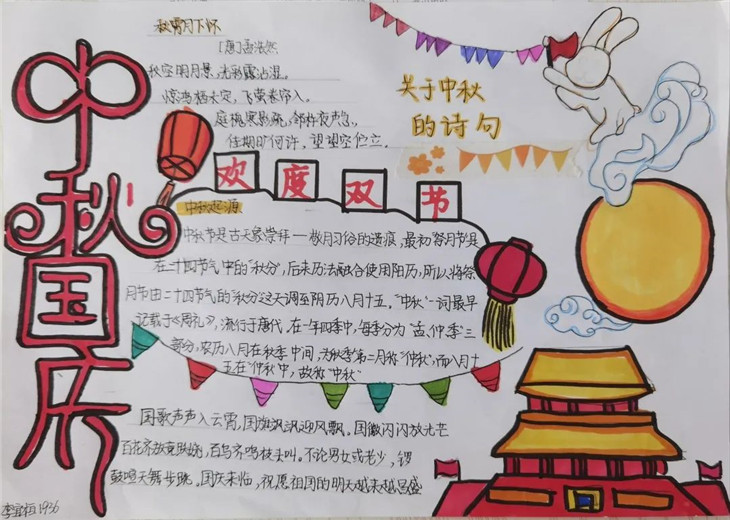 中秋国庆
秋宵月下怀
[唐]孟浩然
秋空明月悬,光彩露沾湿。
惊鹊栖未定,飞萤卷帘入。
庭槐寒影疏,邻杵夜声急。
佳期旷何许,望望空伫立。
关于中秋
的诗句
欢度双节
中秋起源
中秋节是古天象崇拜——敬月习俗的遗痕,最初"祭月节"是
在二十四节气中的"秋分",后来历法融合使用阳历,所以将祭
月节由二十四节气的"秋分"这天调至阴历八月十五。"中秋"一词最早
记载于《周礼》,流行于唐代。在一年四季中,每季分为"孟、仲、季"三
部分,农历八月在秋季中间,为秋季第二月称"仲秋",而八月十
五在"仲秋"中,故称"中秋"
国歌声声入云霄,国旗飒飒迎风飘。国徽闪闪放光芒
百花齐放竞妖娆,百鸟齐鸣枝头叫。不论男女或老少,锣
鼓喧天舞步跳。国庆来临,祝愿祖国的明天越来越昌盛
1936